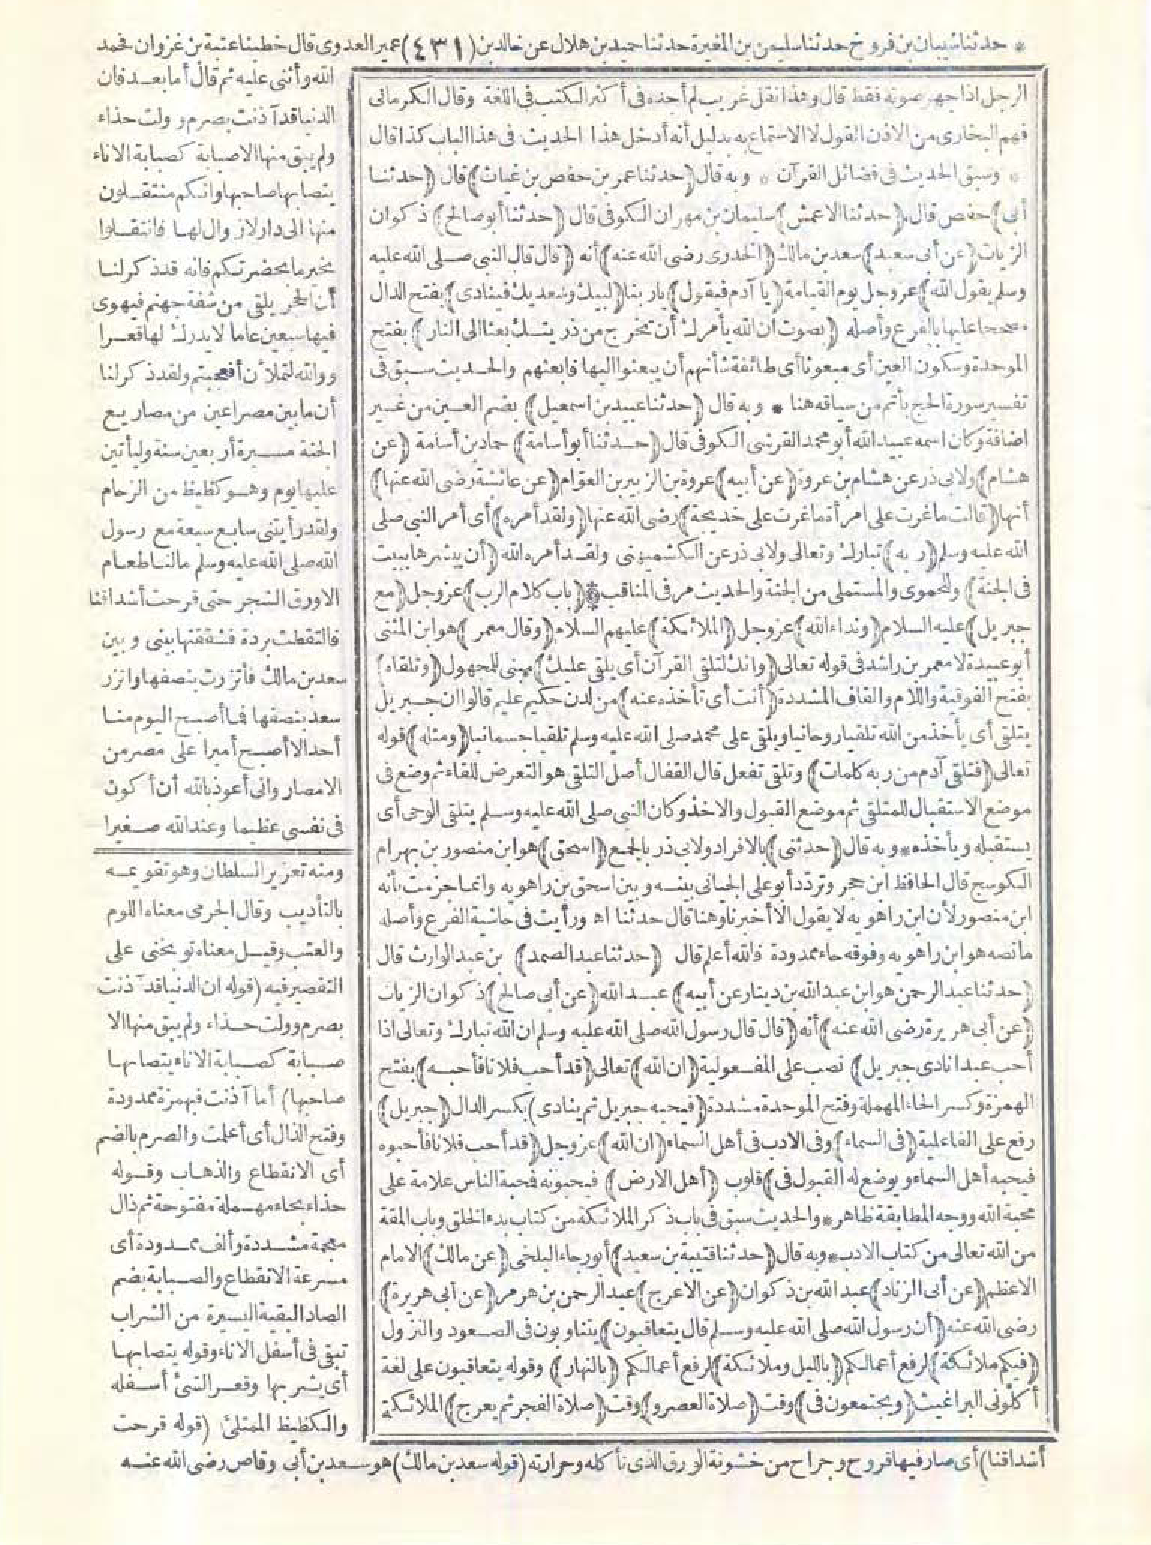 * حدثنا شيبان بن فروخ حدثنا سليمن بن المغيرة حدثنا حميد بن هلال عن خالد بن (٤٣١) عمير العدوى قال خطبنا عتبة بن غزوان فحمد
الرجل اذا جهر صوته فقط قال وهذا نقل غريب لم أجده فى أكثر الكتب فى اللغة وقال الكرمانى
فهم البخارى من الاذن القول لا الاستماع به بدليل أنه أدخل هذا الحديث فى هذا الباب كذا قال
* وسبق الحديث فى فضائل القرآن * وبه قال (حدثنا عمر بن حفص بن غياث) قال (حدثنا
أبى) حفص قال (حدثنا الاعمش) سليمان بن مهران الكوفى قال (حدثنا أبو صالح) ذكوان
الزيات (عن أبى سعيد) سعد بن مالك (الخدرى رضى الله عنه) أنه (قال قال النبى صلى الله عليه
وسلم يقول الله) عز وجل يوم القيامة (يا آدم فيقول) يا ربنا (لبيك وسعديك فينادى) بفتح الدال
مصححا عليها بالفرع وأصله (بصوت ان الله يأمرك أن تخرج من ذريتك بعثا الى النار) بفتح
الموحدة وسكون العين أى مبعوثا أى طائفة شأنهم أن يبعثوا اليها فابعثهم والحديث سبق فى
تفسير سورة الحج بأتم من سياقه هنا * وبه قال (حدثنا عبيد بن اسمعيل) بضم العين من غير
اضافة وكان اسمه عبيد الله أبو محمد القرشى الكوفى قال (حدثنا أبو أسامة) حماد بن أسامة (عن
هشام) ولابى ذر عن هشام بن عروة (عن أبيه) عروة بن الزبير بن العوّام (عن عائشة رضى الله عنها)
أنها (قالت ما غرت على امرأة ما غرت على خديجة) رضى الله عنها (ولقد أمره) أى أمر النبى صلى
الله عليه وسلم (ربه) تبارك وتعالى ولابى ذر عن الكشميهنى ولقد أمره الله (أن يبشرها ببيت
فى الجنة) وللحموى والمستملى من الجنة والحديث مر فى المناقب * (باب كلام الرب) عز وجل (مع
جبريل) عليه السلام (ونداء الله) عز وجل (الملائكة) عليهم السلام (وقال معمر) هو ابن المثنى
أبو عبيدة لا معمر بن راشد فى قوله تعالى (وانك لتلقى القرآن أى يلقى عليك) مبنى للمجهول (وتلقاه)
بفتح الفوقية واللام والقاف المشددة (أنت أى تأخذه عنه) من لدن حكيم عليم قالوا ان جبريل
يتلقى أى يأخذ من الله تلقيا روحانيا ويلقى على محمد صلى الله عليه وسلم تلقيا جسمانيا (ومثله) قوله
تعالى (فتلقى آدم من ربه كلمات) وتلقى تفعل قال القفال أصل التلقى هو التعرض للقاء ثم وضع فى
موضع الاستقبال للمتلقى ثم موضع القبول والاخذ وكان النبى صلى الله عليه وسلم يتلقى الوحى أى
يستقبله ويأخذه * وبه قال (حدثنى) بالافراد ولابى ذر بالجمع (اسحق) هو ابن منصور بن بهرام
الكوسج قال الحافظ ابن حجر وتردّد أبو على الجيانى بينه وبين اسحق بن راهويه وانما جزمت بأنه
ابن منصور لأن ابن راهويه لا يقول الا أخبرنا وهنا قال حدثنا اه ورأيت فى حاشية الفرع وأصله
ما نصه هو ابن راهويه وفوقه حاء ممدودة فالله أعلم قال (حدثنا عبد الصمد) بن عبد الوارث قال
(حدثنا عبد الرحمن هو ابن عبد الله بن دينار عن أبيه) عبد الله (عن أبى صالح) ذكوان الزيات
(عن أبى هريرة رضى الله عنه) أنه (قال قال رسول الله صلى الله عليه وسلم ان الله تبارك وتعالى اذا
أحب عبدا نادى جبريل) نصب على المفعولية (ان الله) تعالى (قد أحب فلانا فأحبه) بفتح
الهمزة وكسر الحاء المهملة وفتح الموحدة مشددة (فيحبه جبريل ثم ينادى) بكسر الدال (جبريل)
رفع على الفاعلية (فى السماء) وفى الادب فى أهل السماء (ان الله) عز وجل (قد أحب فلانا فأحبوه
فيحبه أهل السماء ويوضع له القبول فى) قلوب (أهل الارض) فيحبونه فمحبة الناس علامة على
محبة الله ووجه المطابقة ظاهر * والحديث سبق فى باب ذكر الملائكة من كتاب بدء الخلق وباب المقة
من الله تعالى من كتاب الادب * وبه قال (حدثنا قتيبة بن سعيد) أبو رجاء البلخى (عن مالك) الامام
الاعظم (عن أبى الزناد) عبد الله بن ذكوان (عن الاعرج) عبد الرحمن بن هرمز (عن أبى هريرة)
رضى الله عنه (أن رسول الله صلى الله عليه وسلم قال يتعاقبون) يتناوبون فى الصعود والنزول
(فيكم ملائكة) لرفع أعمالكم (بالليل وملائكة) لرفع أعمالكم (بالنهار) وقوله يتعاقبون على لغة
أكلونى البراغيث (ويجتمعون فى) وقت (صلاة العصر و) وقت (صلاة الفجر ثم يعرج) الملائكة
الله وأثنى عليه ثم قال أما بعد فان
الدنيا قد آذنت بصرم وولت حذاء
ولم يبق منها الا صبابة كصبابة الاناء
يتصابها صاحبها وانكم منتقلون
منها الى دار لا زوال لها فانتقلوا
بخير ما بحضرتكم فانه قد ذكر لنا
أن الحجر يلقى من شفة جهنم فيهوى
فيها سبعين عاما لا يدرك لها قعرا
ووالله لتملأن أفعجبتم ولقد ذكر لنا
أن ما بين مصراعين من مصاريع
الجنة مسيرة أربعين سنة وليأتين
عليها يوم وهو كظيظ من الزحام
ولقد رأيتنى سابع سبعة مع رسول
الله صلى الله عليه وسلم مالنا طعام
الا ورق الشجر حتى قرحت أشداقنا
فالتقطت بردة فشققتها بينى وبين
سعد بن مالك فأتزرت بنصفها واتزر
سعد بنصفها فما أصبح اليوم منا
أحد الا أصبح أميرا على مصر من
الامصار وانى أعوذ بالله أن أكون
فى نفسى عظيما وعند الله صغيرا
ومنه تعزير السلطان وهو تقويمه
بالتأديب وقال الحربى معناه اللوم
والعتب وقيل معناه توبخنى على
التقصير فيه (قوله ان الدنيا قد آذنت
بصرم وولت حذاء ولم يبق منها الا
صبابة كصبابة الاناء يتصابها
صاحبها) أما آذنت فبهمزة ممدودة
وفتح الذال أى أعلمت والصرم بالضم
أى الانقطاع والذهاب وقوله
حذاء بحاء مهملة مفتوحة ثم ذال
معجمة مشددة وألف ممدودة أى
مسرعة الانقطاع والصبابة بضم
الصاد البقية اليسيرة من الشراب
تبقى فى أسفل الاناء وقوله يتصابها
أى يشربها وقعر الشئ أسفله
والكظيظ الممتلئ (قوله قرحت
أشداقنا) أى صار فيها قروح وجراح من خشونة الورق الذى نأكله وحرارته (قوله سعد بن مالك) هو سعد بن أبى وقاص رضى الله عنه